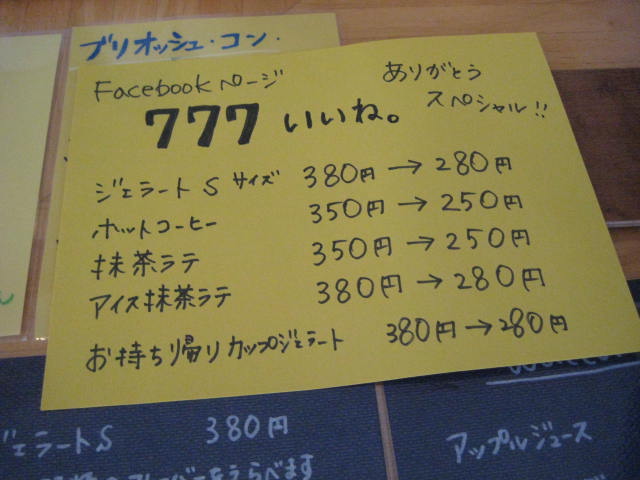 ブリオッシュ・コン・
Facebookページ
ありがとう
スペシャル!!
777 いいね。
ジェラートS サイズ 380円→280円
ホットコーヒー 350円→250円
抹茶ラテ 350円→250円
アイス抹茶ラテ 380円→280円
お持ち帰りカップジェラート 380円→280円
ジェラートS 380円
アップルジュース